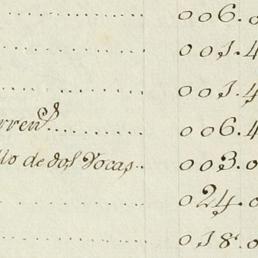 006.0
001.4
001.4
rren.te 006.4
llo de dos Vocas 003.0
024.0
018.0